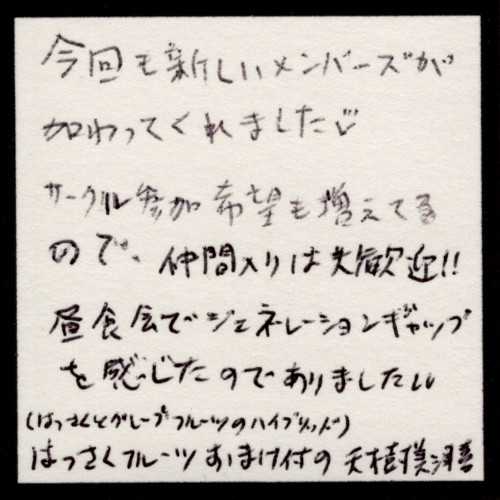 今回も新しいメンバーズが
加わってくれました♡
サークル参加希望も増えてる
ので、仲間入りは大歓迎!!
昼食会でジェネレーションギャップ
を感じたのでありましたいい
(はっさくとグレープフルーツのハイブリッド)
はっさくフルーツおまけ付の